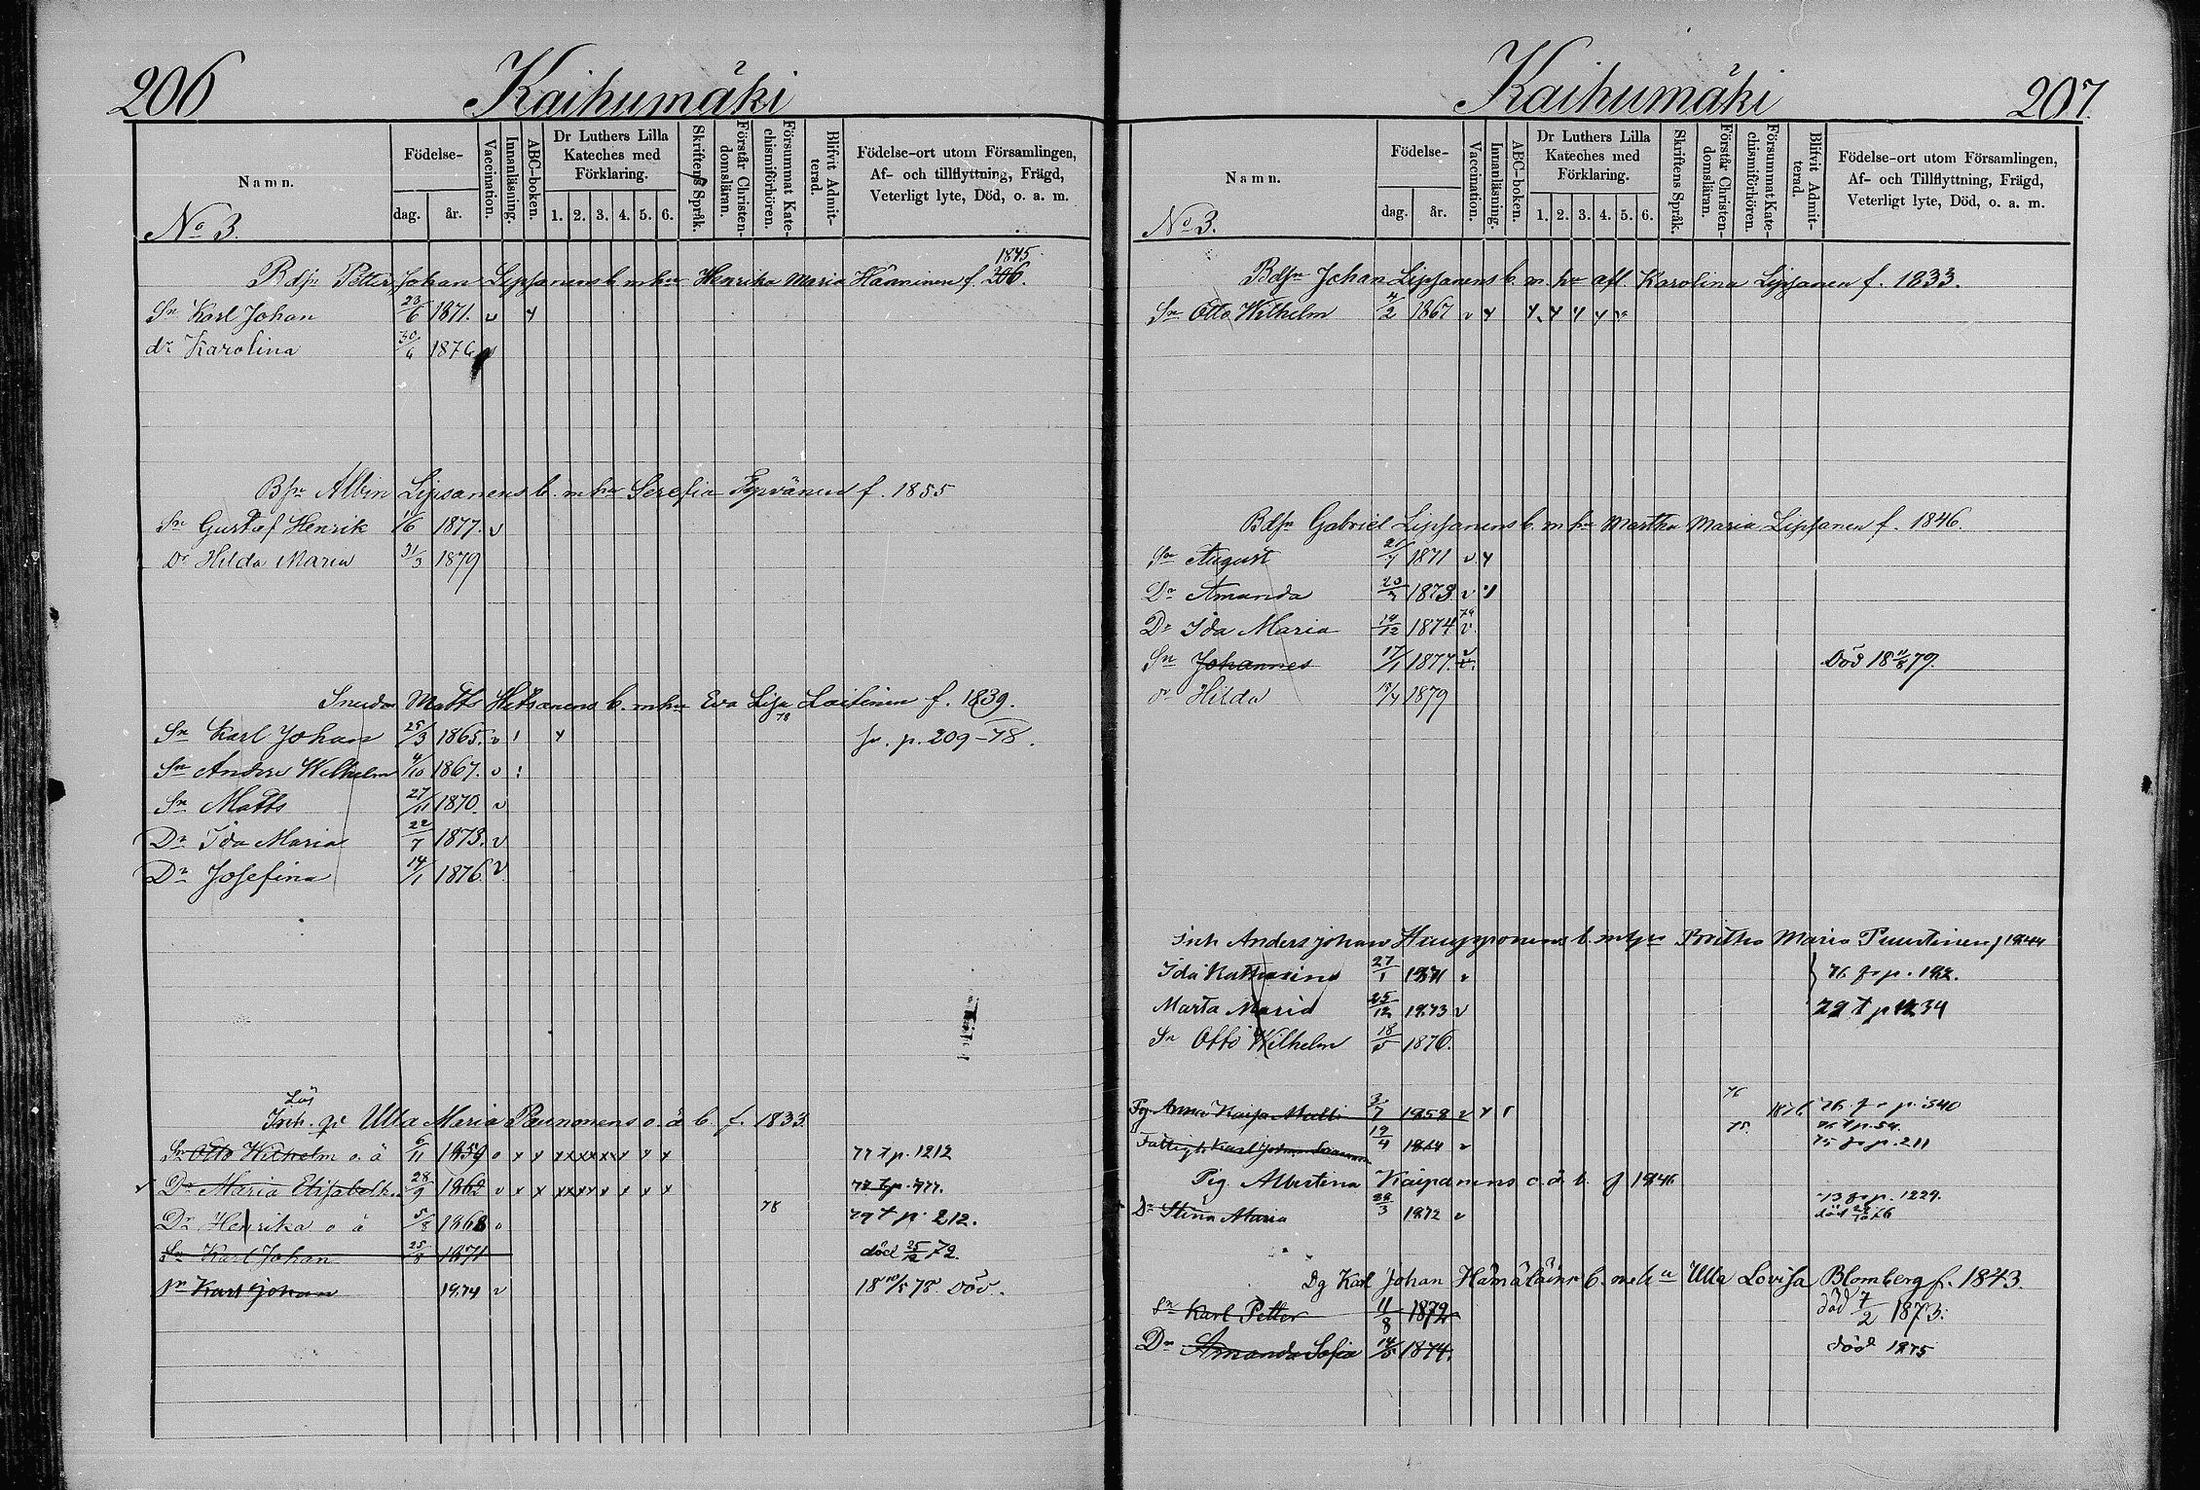 206
Kaihumäki
Namn.
Födelse-
dag. år.
Vaccination.
Innanläsning.
ABC-boken.
Dr Luthers Lilla Kateches med Förklaring.
1. 2. 3. 4. 5. 6.
Skriftens Språk.
Förstår Christen-domsläran.
Försummat Kate-chismiförhören.
Blifvit Admit-terad.
Födelse-ort utom Församlingen,
Af- och tillflyttning, Frägd,
Veterligt lyte, Död, o. a. m.
No 3.
1845
Bdsn Petter Johan Lipsanens b. m. hu Henrika Maria Hänninen f.
Sn Karl Johan 23/6 1871. v
dr Karolina 30/6 1876 v
Bsn Albin Lipsanens b. m hu Serefia f. 1855
Sn Gustaf Henrik 1877. v
Dr Hilda Maria 31/3 1879
Matts b. m hu Eva Lisa Laitinen f. 1839.
Sn Karl Johan 25/3 1865. v fr. p. 209-78.
Sn Anders Wilhelm 4/10 1867. v
Sn Matts 27/11 1870. v
Dr Ida Maria 22/7 1873. v
Dr Josefina 14/1 1876. v
Lös
Inh. Ulla Maria Paunonens o. ä b. f. 1833
Sn Otto Wilhelm o. ä 6/11 1859 v x x x x x x x x x 77 t p. 1212
Dr Maria Elisabeth 28/9 1862 v x x x x x x x x x
Dr Henrika o ä 5/8 1868 v 78 79 t p. 212.
Sn Karl Johan 25/8 1871 död 25/12 72.
Sn Karl Johan 1874 v Död.
Kaihumäki
207.
Namn.
Födelse-
dag. år.
Vaccination.
Innanläsning.
ABC-boken.
Dr Luthers Lilla Kateches med Förklaring.
1. 2. 3. 4. 5. 6.
Skriftens Språk.
Förstår Christen-domsläran.
Försummat Kate-chismiförhören.
Blifvit Admit-terad.
Födelse-ort utom Församlingen,
Af- och Tillflyttning, Frägd,
Veterligt lyte, Död, o. a. m.
No 3.
Bdsn Johan Lipsanens b. m. hu afl. Karolina Lipsanen f. 1833.
Sn Otto Wilhelm 4/2 1867 v
Bdsn Gabriel Lipsanens b. m hu Martha Maria Lipsanen f. 1846.
Sn August 21/7 1871 v
Dr Amanda 1873 v
Dr Ida Maria 14/12 1874 v
Sn Johannes 17/1 1877. v Död 18 11/8 79.
dr Hilda 1879
Inh Anders Johan b. m hu Maria Puustinen f 1844
Ida Katharina 27/1 1871 v 76 fr p. 192.
Marta Maria 25/12 1873 v
Sn Otto Wilhelm 18/5 1876.
76
Pg Anna Kaisa 3/7 1858 v 1876 76 fr p. 340
76 t p. 54.
75. Karl Johan 19/4 1864 v 75 fr p. 211
Pig Albertina Kaipanens o. ä. b. f 1846
Dr Stina Maria 28/3 1872 v 73 fr p. 1229.
död
Dg Karl Johan Hämäläins b. m h a Ulla Lovisa Blomberg f. 1843.
Sn Karl Petter 11/8 1872 död 7/2 1873.
Dr Amanda Sofia 14/5 1874. död 1875